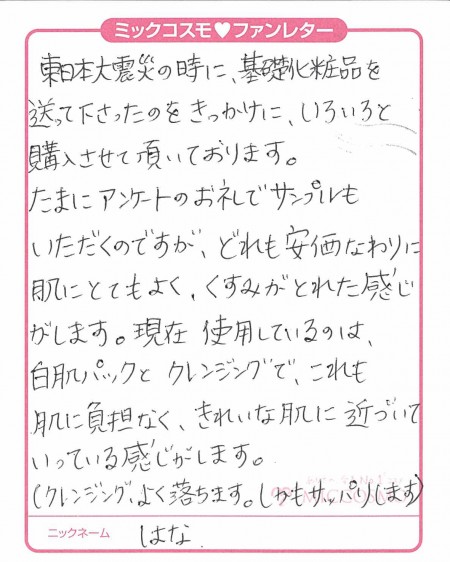 ミックコスモ♥ファンレター
東日本大震災の時に、基礎化粧品を
送って下さったのをきっかけに、いろいろと
購入させて頂いております。
たまにアンケートのお礼でサンプルも
いただくのですが、どれも安価なわりに
肌にとてもよく、くすみがとれた感じ
がします。現在 使用しているのは、
白肌パックと クレンジングで、これも
肌に負担なく、きれいな肌に近づいて
いっている感じがします。
(クレンジング、よく落ちます。しかもサッパリします)
ニックネーム はな